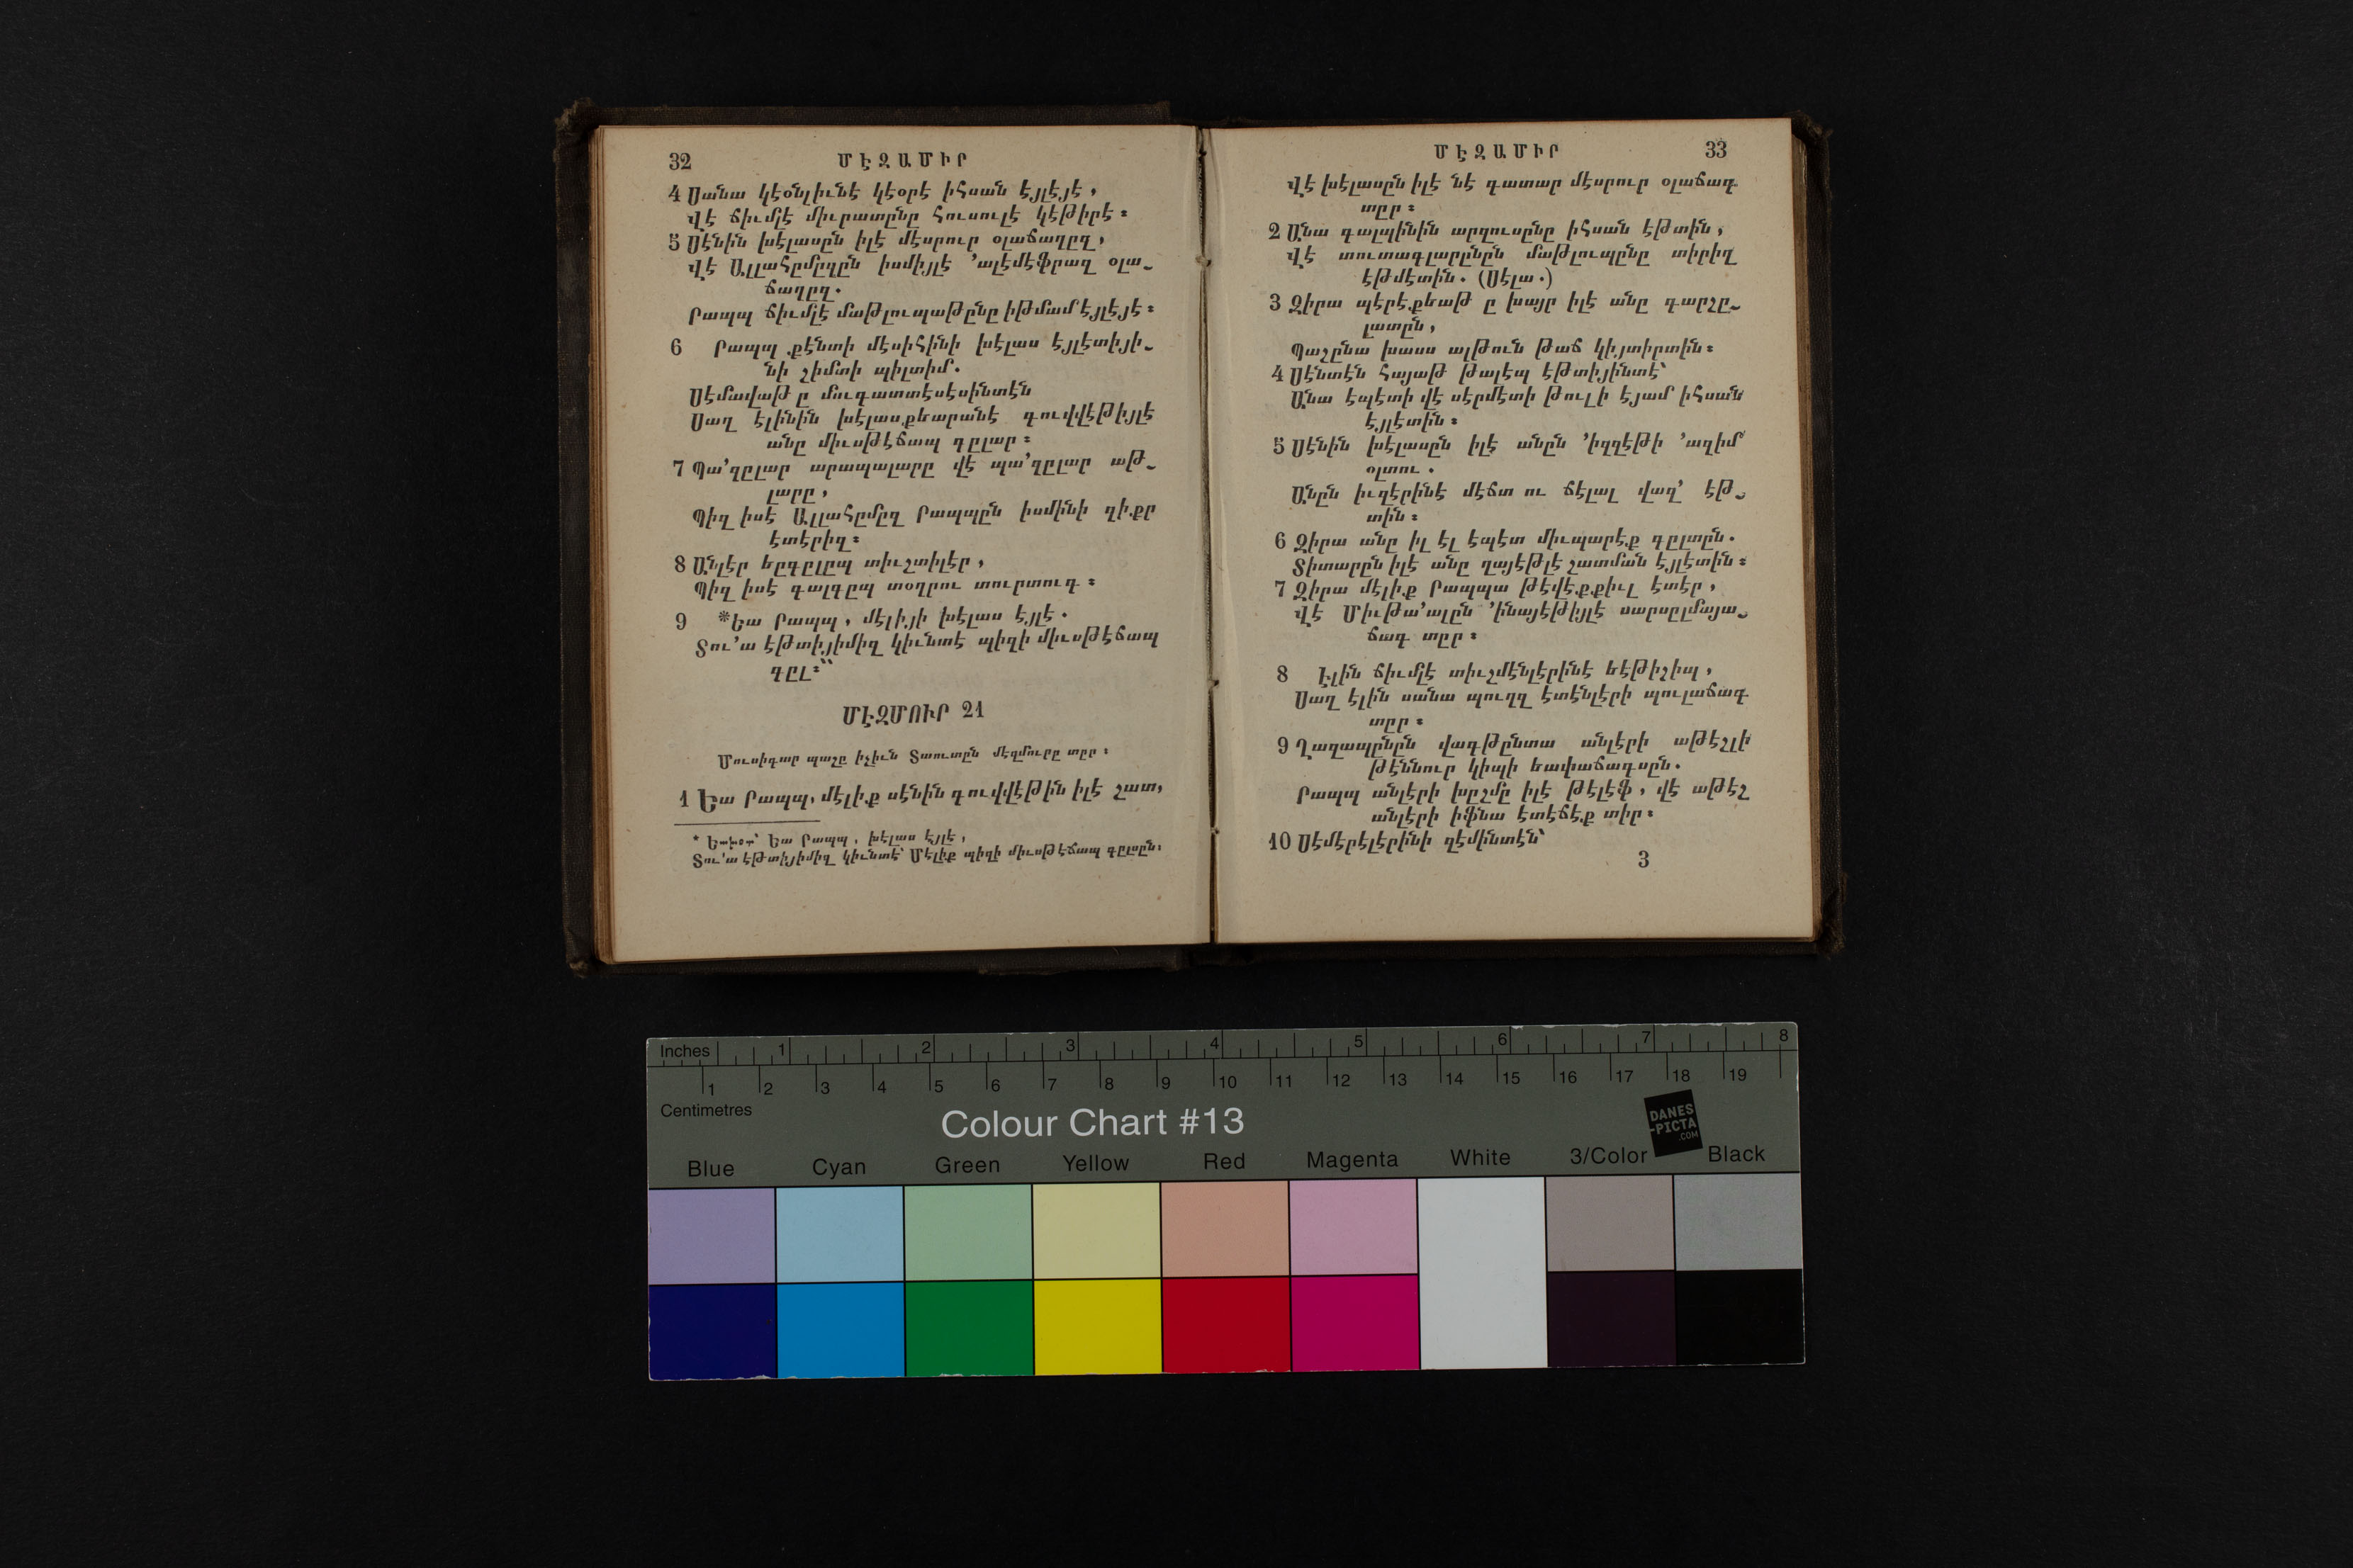 32 ՄԷԶԱՄԻՐ
4 Սանա կէօնլիւնէ կէօրէ իհսան էյլէյէ,
Վէ ճիւմլէ միւրատընը հուսուլէ կէթիրէ։
5 Սէնին խէլասըն իլէ մէսրուր օլաճաղըզ,
Վէ Ալլահըմըզըն իսմիյլէ ՚ալէմէֆրազ օլա֊
ճաղըզ.
Րապպ ճիւմլէ մաթլուպաթընը իթմամ էյլէյէ։
6 Րապպ քէնտի մէսիհինի խէլաս էյլէտիյի֊
նի շիմտի պիլտիմ.
Սէմավաթ ը մուգատտէսէսինտէն
Սաղ էլինին խէլասքեարանէ գուվվէթիյլէ
անը միւսթէճապ գըլար։
7 Պա՚զըլար արապալարը վէ պա՚զըլար աթ֊
լարը,
Պիզ իսէ Ալլահըմըզ Րապպըն իսմինի զիքր
էտէրիզ։
8 Անլէր եըգըլըպ տիւշտիլէր,
Պիզ իսէ գալգըպ տօղրու տուրտուգ։
9 *Եա Րապպ, մէլիյի խէլաս էյլէ.
Տու՚ա էթտիյիմիզ կիւնտէ պիզի միւսթէճապ
գըլ։՝՝
ՄԷԶՄՈՒՐ 21
Մուսիգար պաշը իչիւն Տաուտըն մէզմուրը տըր։
1 Եա Րապպ, մէլիք սէնին գուվվէթին իլէ շատ,
* Եախօտ՝ Եա Րապպ, խէլաս էյլէ,
Տու՚ա էթտիյիմիզ կիւնտէ՝ Մէլիք պիզի միւսթէճապ գըլսըն.
ՄԷԶԱՄԻՐ 33
Վէ խէլասըն իլէ նէ գատար մէսրուր օլաճագ
տըր։
2 Անա գալպինին արզուսընը իհսան էթտին,
Վէ տուտագլարընըն մաթլուպընը տիրիզ
էթմէտին. (Սէլա.)
3 Զիրա պէրէքեաթ ը խայր իլէ անը գարշը֊
լատըն,
Պաշընա խասս ալթուն թաճ կիյտիրտին։
4 Սէնտէն հայաթ թալէպ էթտիյինտէ՝
Անա էպէտի վէ սէրմէտի թուլի էյամ իհսան
էյլէտին։
5 Սէնին խէլասըն իլէ անըն ՚իզզէթի ՚ազիմ
օլտու.
Անըն իւզէրինէ մէճտ ու ճէլալ վազ՚ էթ֊
տին։
6 Զիրա անը իլ էլ էպէտ միւպարէք գըլտըն.
Տիտարըն իլէ անը ղայէթլէ շատման էյլէտին։
7 Զիրա մէլիք Րապպա թէվէքքիւլ էտէր,
Վէ Միւթա՚ալըն ՚ինայէթիյլէ սարսըլմայա֊
ճագ տըր։
8 Էլին ճիւմլէ տիւշմէնլէրինէ եէթիշիպ,
Սաղ էլին սանա պուղզ էտէնլէրի պուլաճագ
տըր։
9 Ղազապընըն վագթընտա անլէրի աթէշլի
թէննուր կիպի եափաճագսըն.
Րապպ անլէրի խըշմը իլէ թէլէֆ, վէ աթէշ
անլէրի իֆնա էտէճէք տիր։
10 Սէմէրէլէրինի զէմինտէն՝
3
Inches 1 2 3 4 5 6 7 8
1 2 3 4 5 6 7 8 9 10 11 12 13 14 15 16 17 18 19
Centimetres
Colour Chart #13
DANES
-PICTA
.COM
Blue Cyan Green Yellow Red Magenta White 3/Color Black